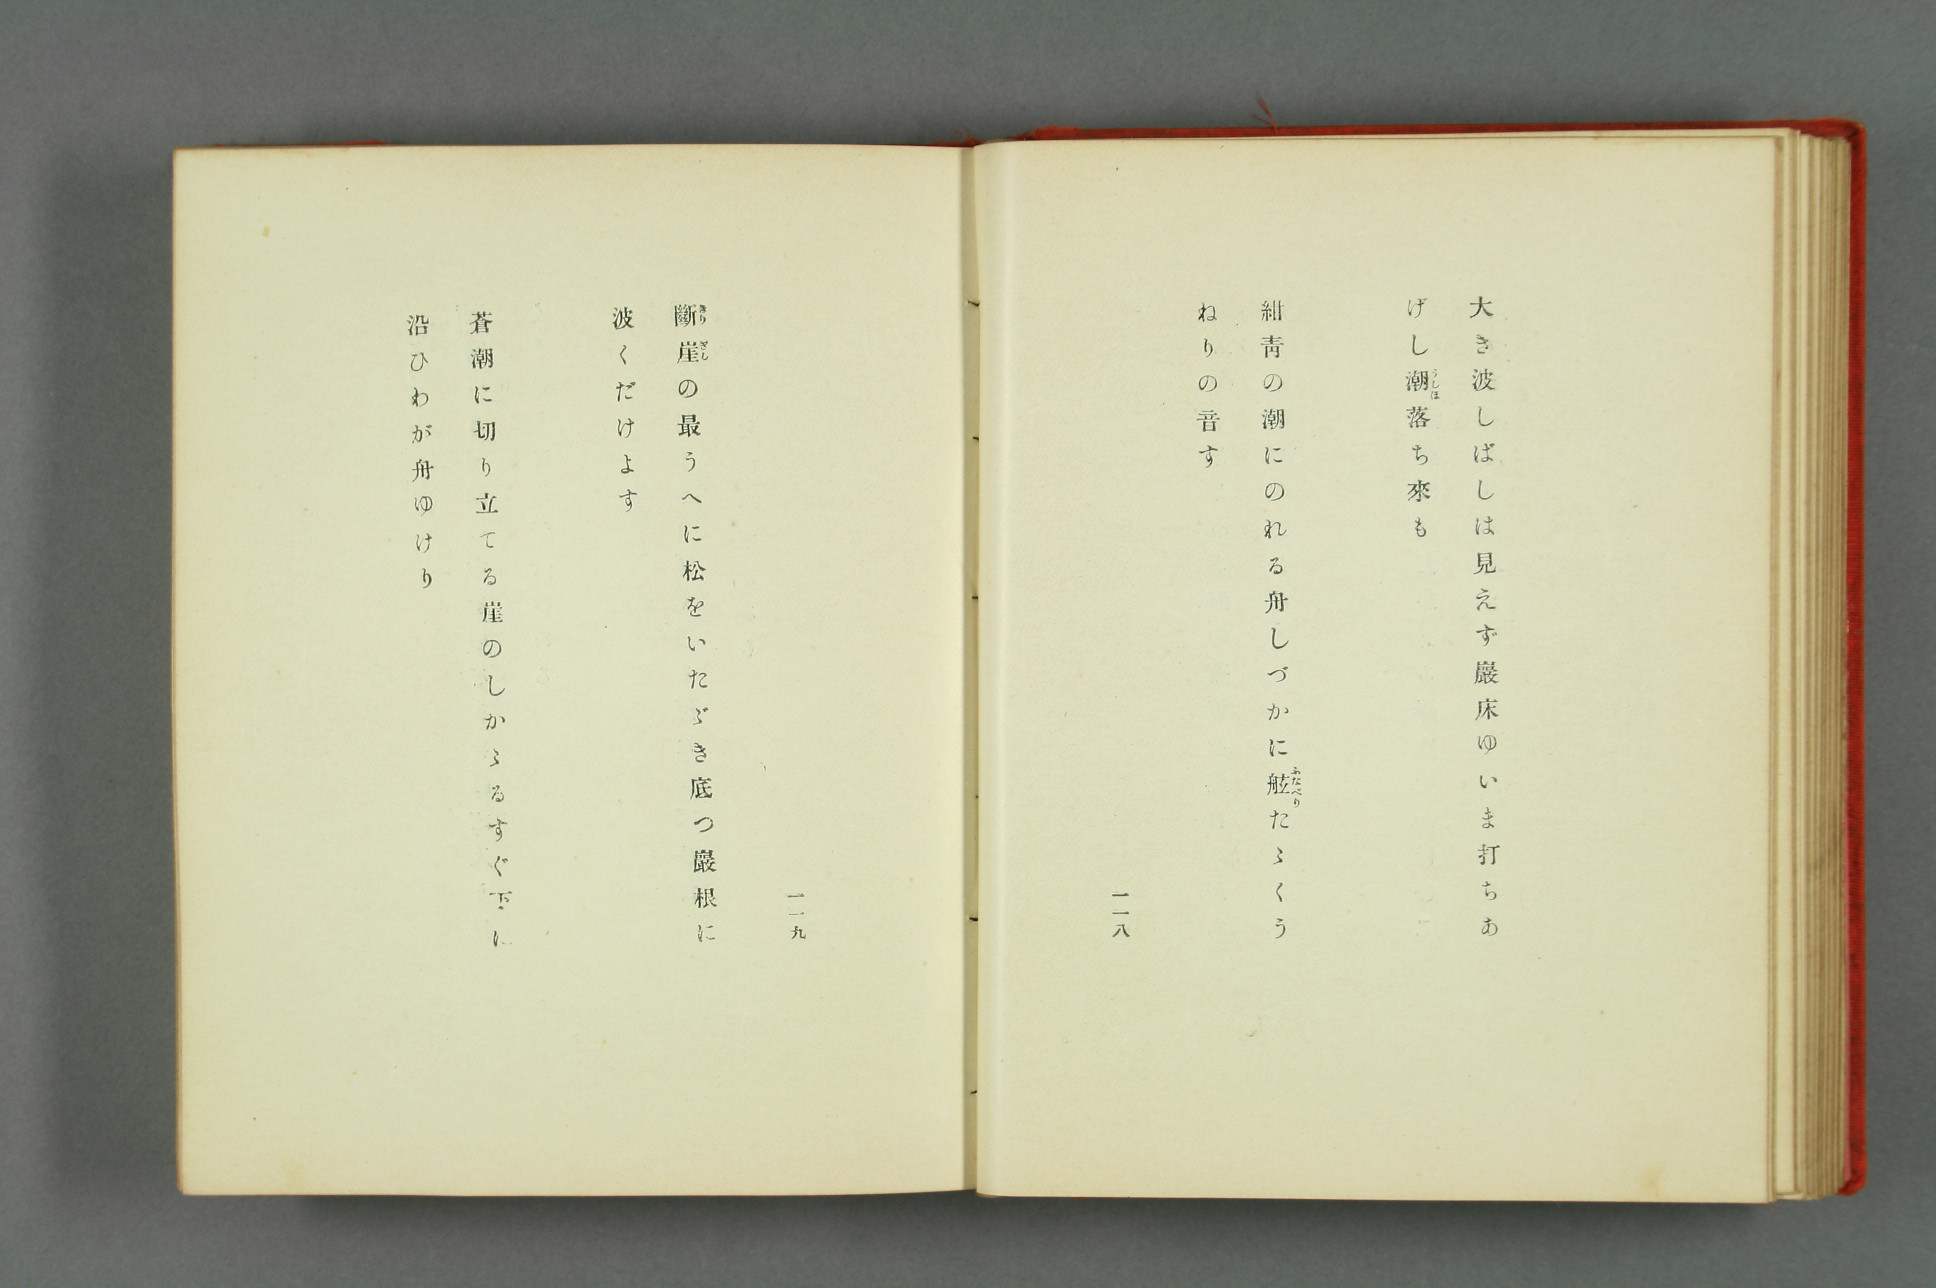 大き波しばしは見えず巖床ゆいま打ちあ
げし潮落ち來も
うしほ
紺靑の潮にのれる舟しづかに舷たゝくう
ふなべり
ねりの音す
一一八
一一九
斷崖の最うへに松をいたゞき底つ巖根に
きりぎし
波くだけよす
蒼潮に切り立てる崖のしかゝるすぐ下に
沿ひわが舟ゆけり